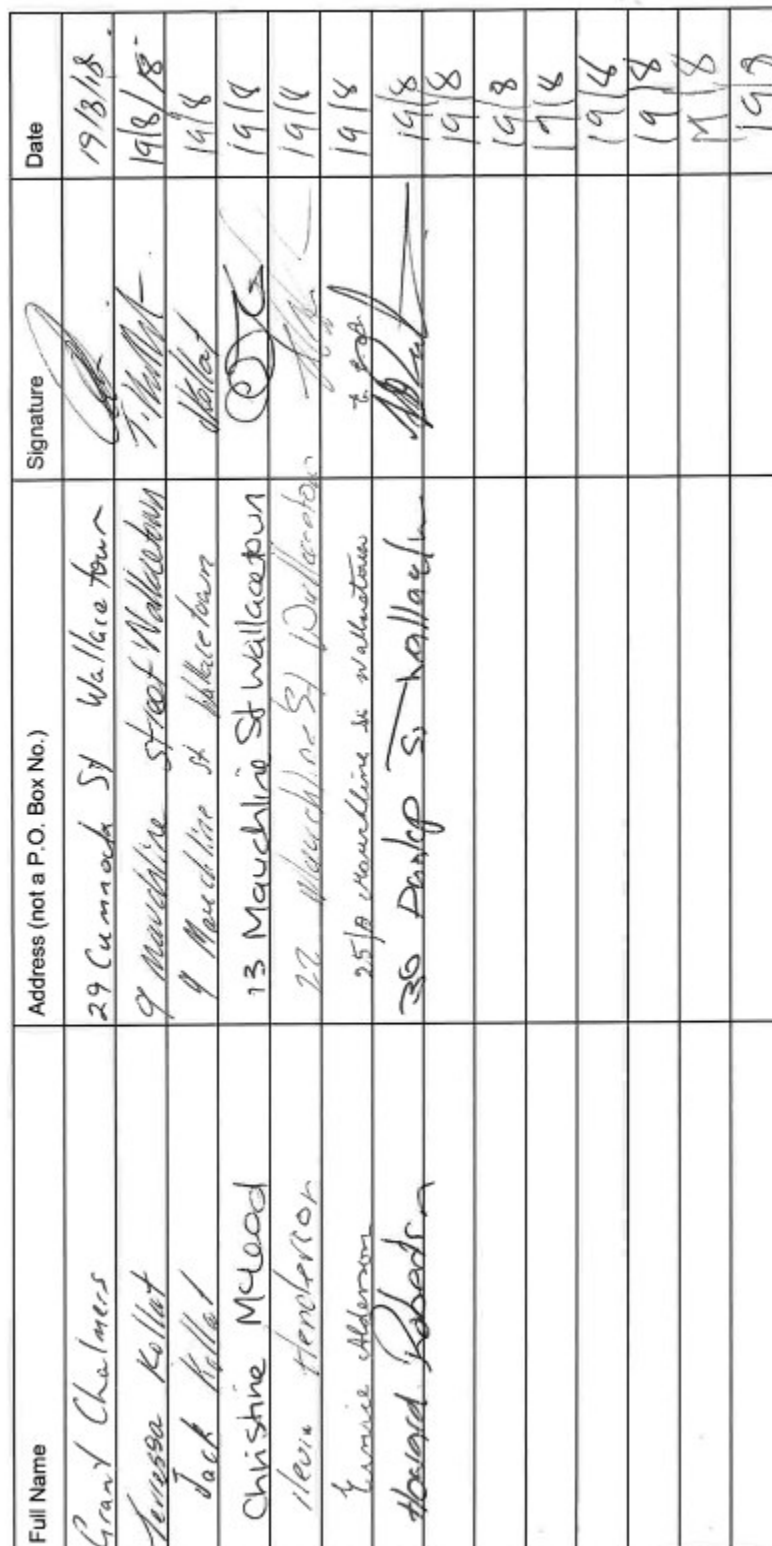 Full Name Address (not a P.O. Box No.) Signature Date
Grant Chalmers 29 Cumnock St Wallacetown 19/8/18.
Teressa Kollat 9 Mauchline Street Wallacetown 19/8/18
Jack Kollat 9 Mauchline St Wallacetown JKollat 19/8
Christine McLeod 13 Mauchline St Wallacetown 19/8
Henderson 22 Mauchline St Wallacetown 19/8
Alderson 25/A Mauchline St Wallacetown 19/8
Howard Robertson 30 Dunlop St 19/8
19/8
19/8
19/8
19/8
19/8
19/8
19/8